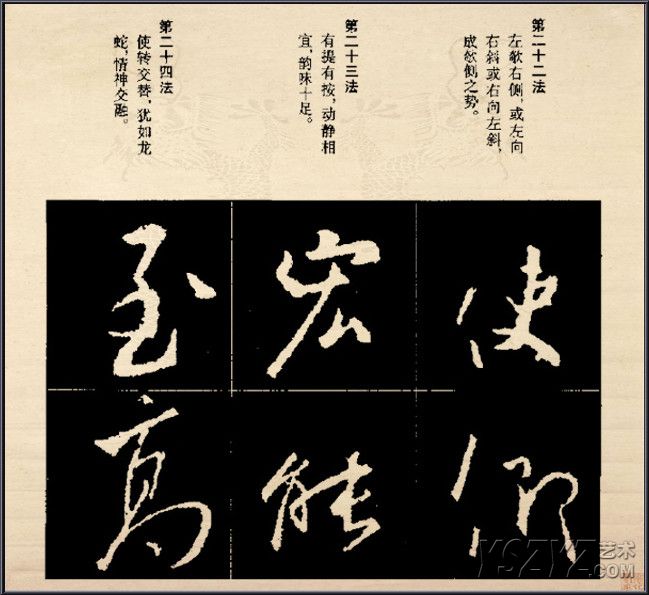 第二十二法
左欹右侧，或左向
右斜或右向左斜，
成欹侧之势。
第二十三法
有提有按，动静相
宜，韵味十足。
第二十四法
使转交替，犹如龙
蛇，情神交融。
使
宏
至
能
高
YSZYZ艺术
.COM